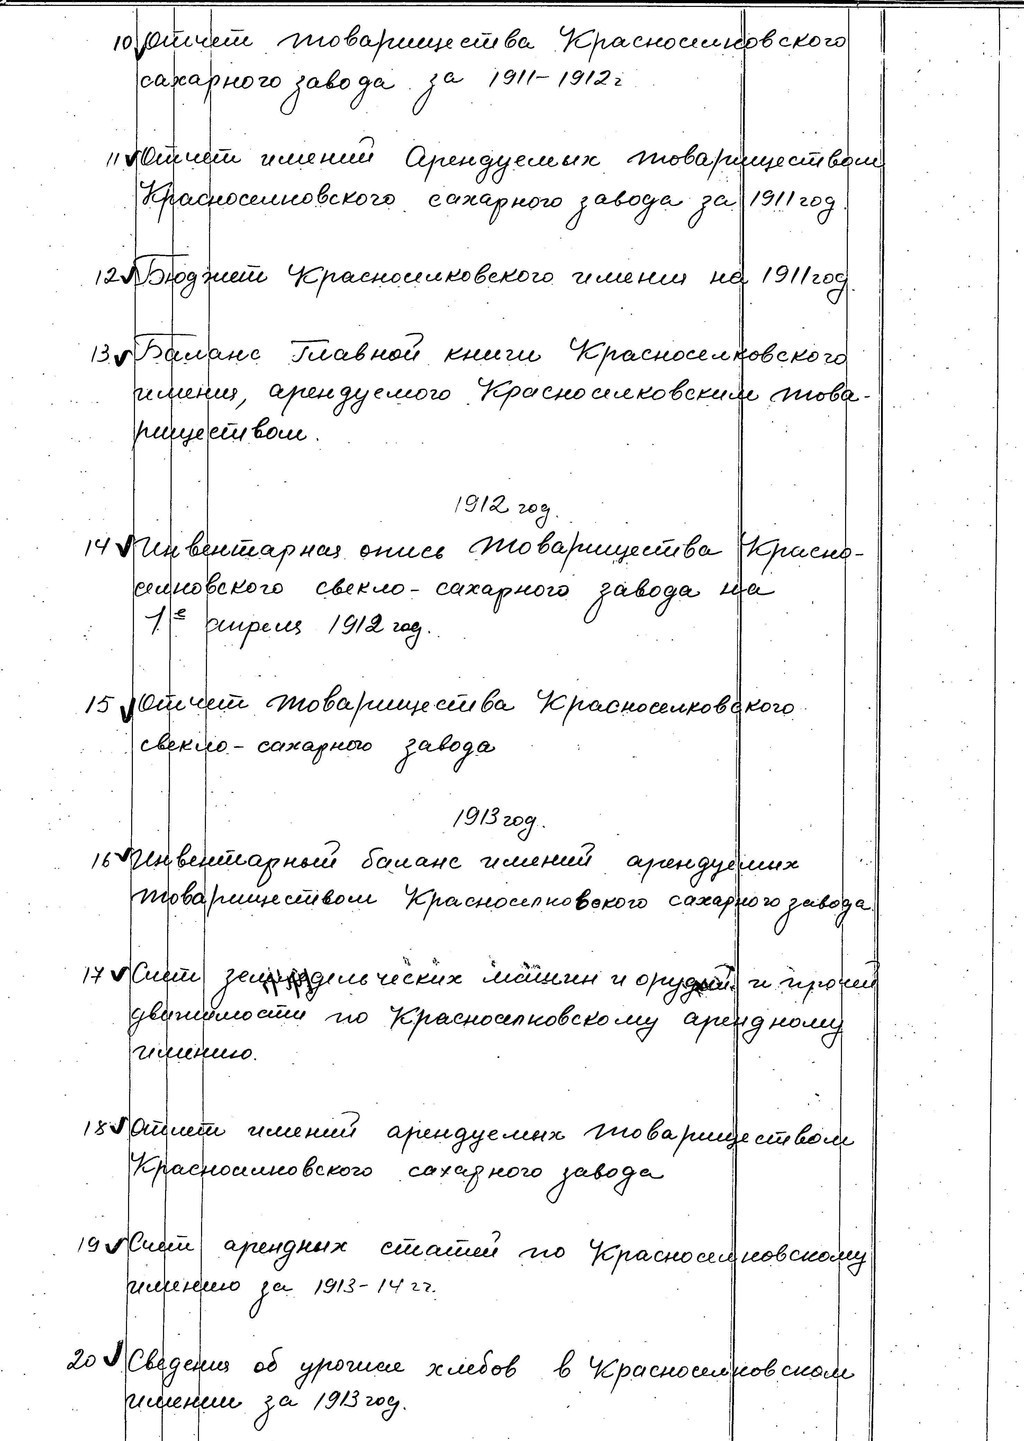 10 Отчет товарищества Красноселковского
сахарного завода за 1911-1912 г
11 Отчет имений Арендуемых товариществом
Красноселковского сахарного завода за 1911 год.
12 Бюджет Красноселковского имения на 1911 год.
13 Баланс Главной книги Красноселковского
имения, арендуемого Красноселковским това-
риществом.
1912 год.
14 Инвентарная опись товарищества Красно-
селковского свекло-сахарного завода на
1е апреля 1912 год.
15 Отчет товарищества Красноселковского
свекло-сахарного завода
1913 год.
16 Инвентарный баланс имений арендуемых
товариществом Красноселковского сахарного завода.
17 Счет земледельческих машин и орудий и прочей
движимости по Красноселковскому арендному
имению.
18 Отчет имений арендуемых товариществом
Красноселковского сахарного завода
19 Счет арендных статей по Красноселковскому
имению за 1913-14 гг.
20 Сведения об урожае хлебов в Красноселковском
имении за 1913 год.